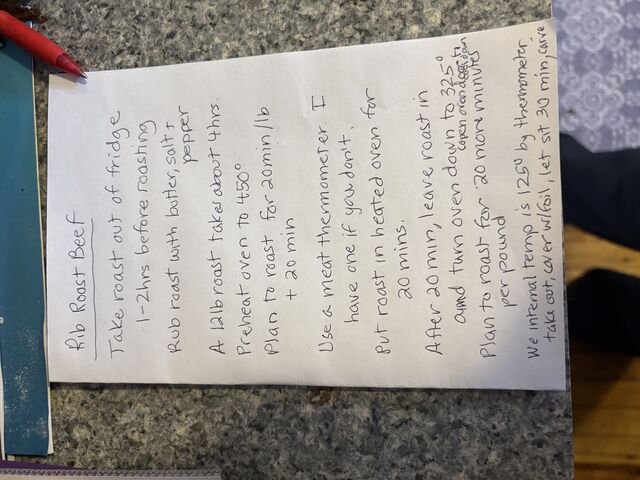 Rib Roast Beef
Take roast out of fridge
1-2hrs before roasting
Rub roast with butter, salt +
pepper
A 12lb roast takes about 4hrs.
Preheat oven to 450°
Plan to roast for 20min/lb
+ 20 min
Use a meat thermometer. I
have one if you don't.
Put roast in heated oven for
20 mins.
After 20 min, leave roast in
and turn oven down to 325°
open oven door to
Plan to roast for 20 more minutes
per pound
We internal temp is 125° by thermometer,
take out, cover w/foil, let sit 30 min, carve